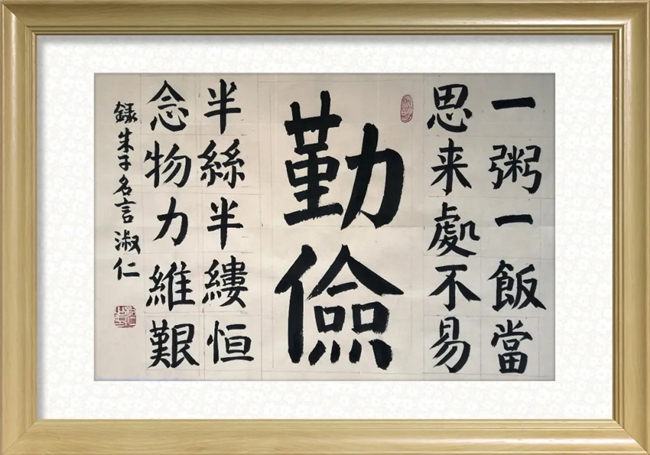 一粥一飯當
思来處不易
勤儉
半絲半縷恒
念物力維艱
錄朱子名言 淑仁